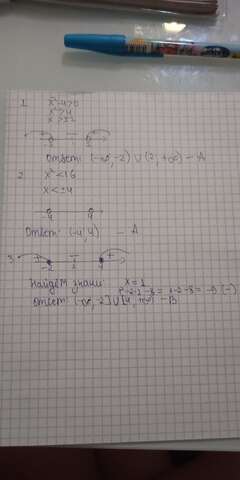 1. x²-4>0
x²>4
x>±2
-2 2
Ответ: (-∞, -2) ∪ (2, +∞) - А
2. x² < 16
x < ±4
-4 4
Ответ: (-4, 4) - А
3. + - +
-2 4
Найдём знаки: x = 1
1-2-8 = -9 (-)
Ответ: (-∞, -2] ∪ [4, +∞) - В